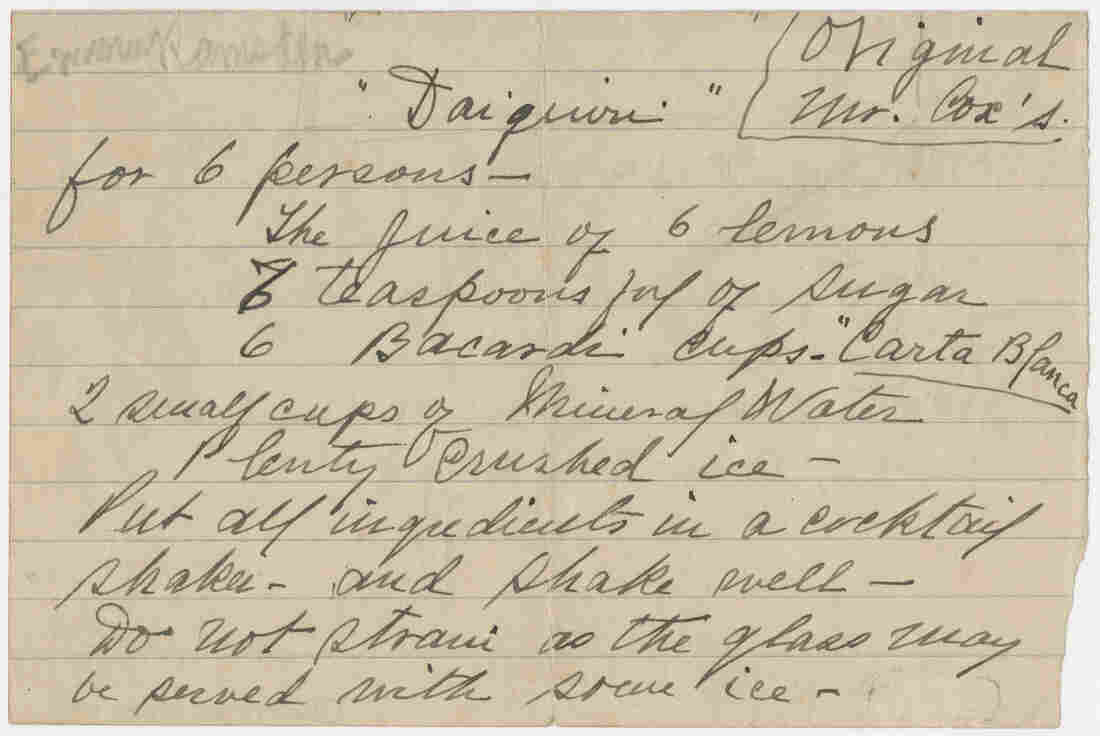 Original
" Daiquiri " Mr. Cox's.
for 6 persons –
The juice of 6 lemons
6 teaspoons ful of sugar
6 Bacardi cups – "Carta Blanca
2 small cups of Mineral Water
Plenty crushed ice –
Put all ingredients in a cocktail
shaker – and shake well –
Do not strain as the glass may
be served with some ice –